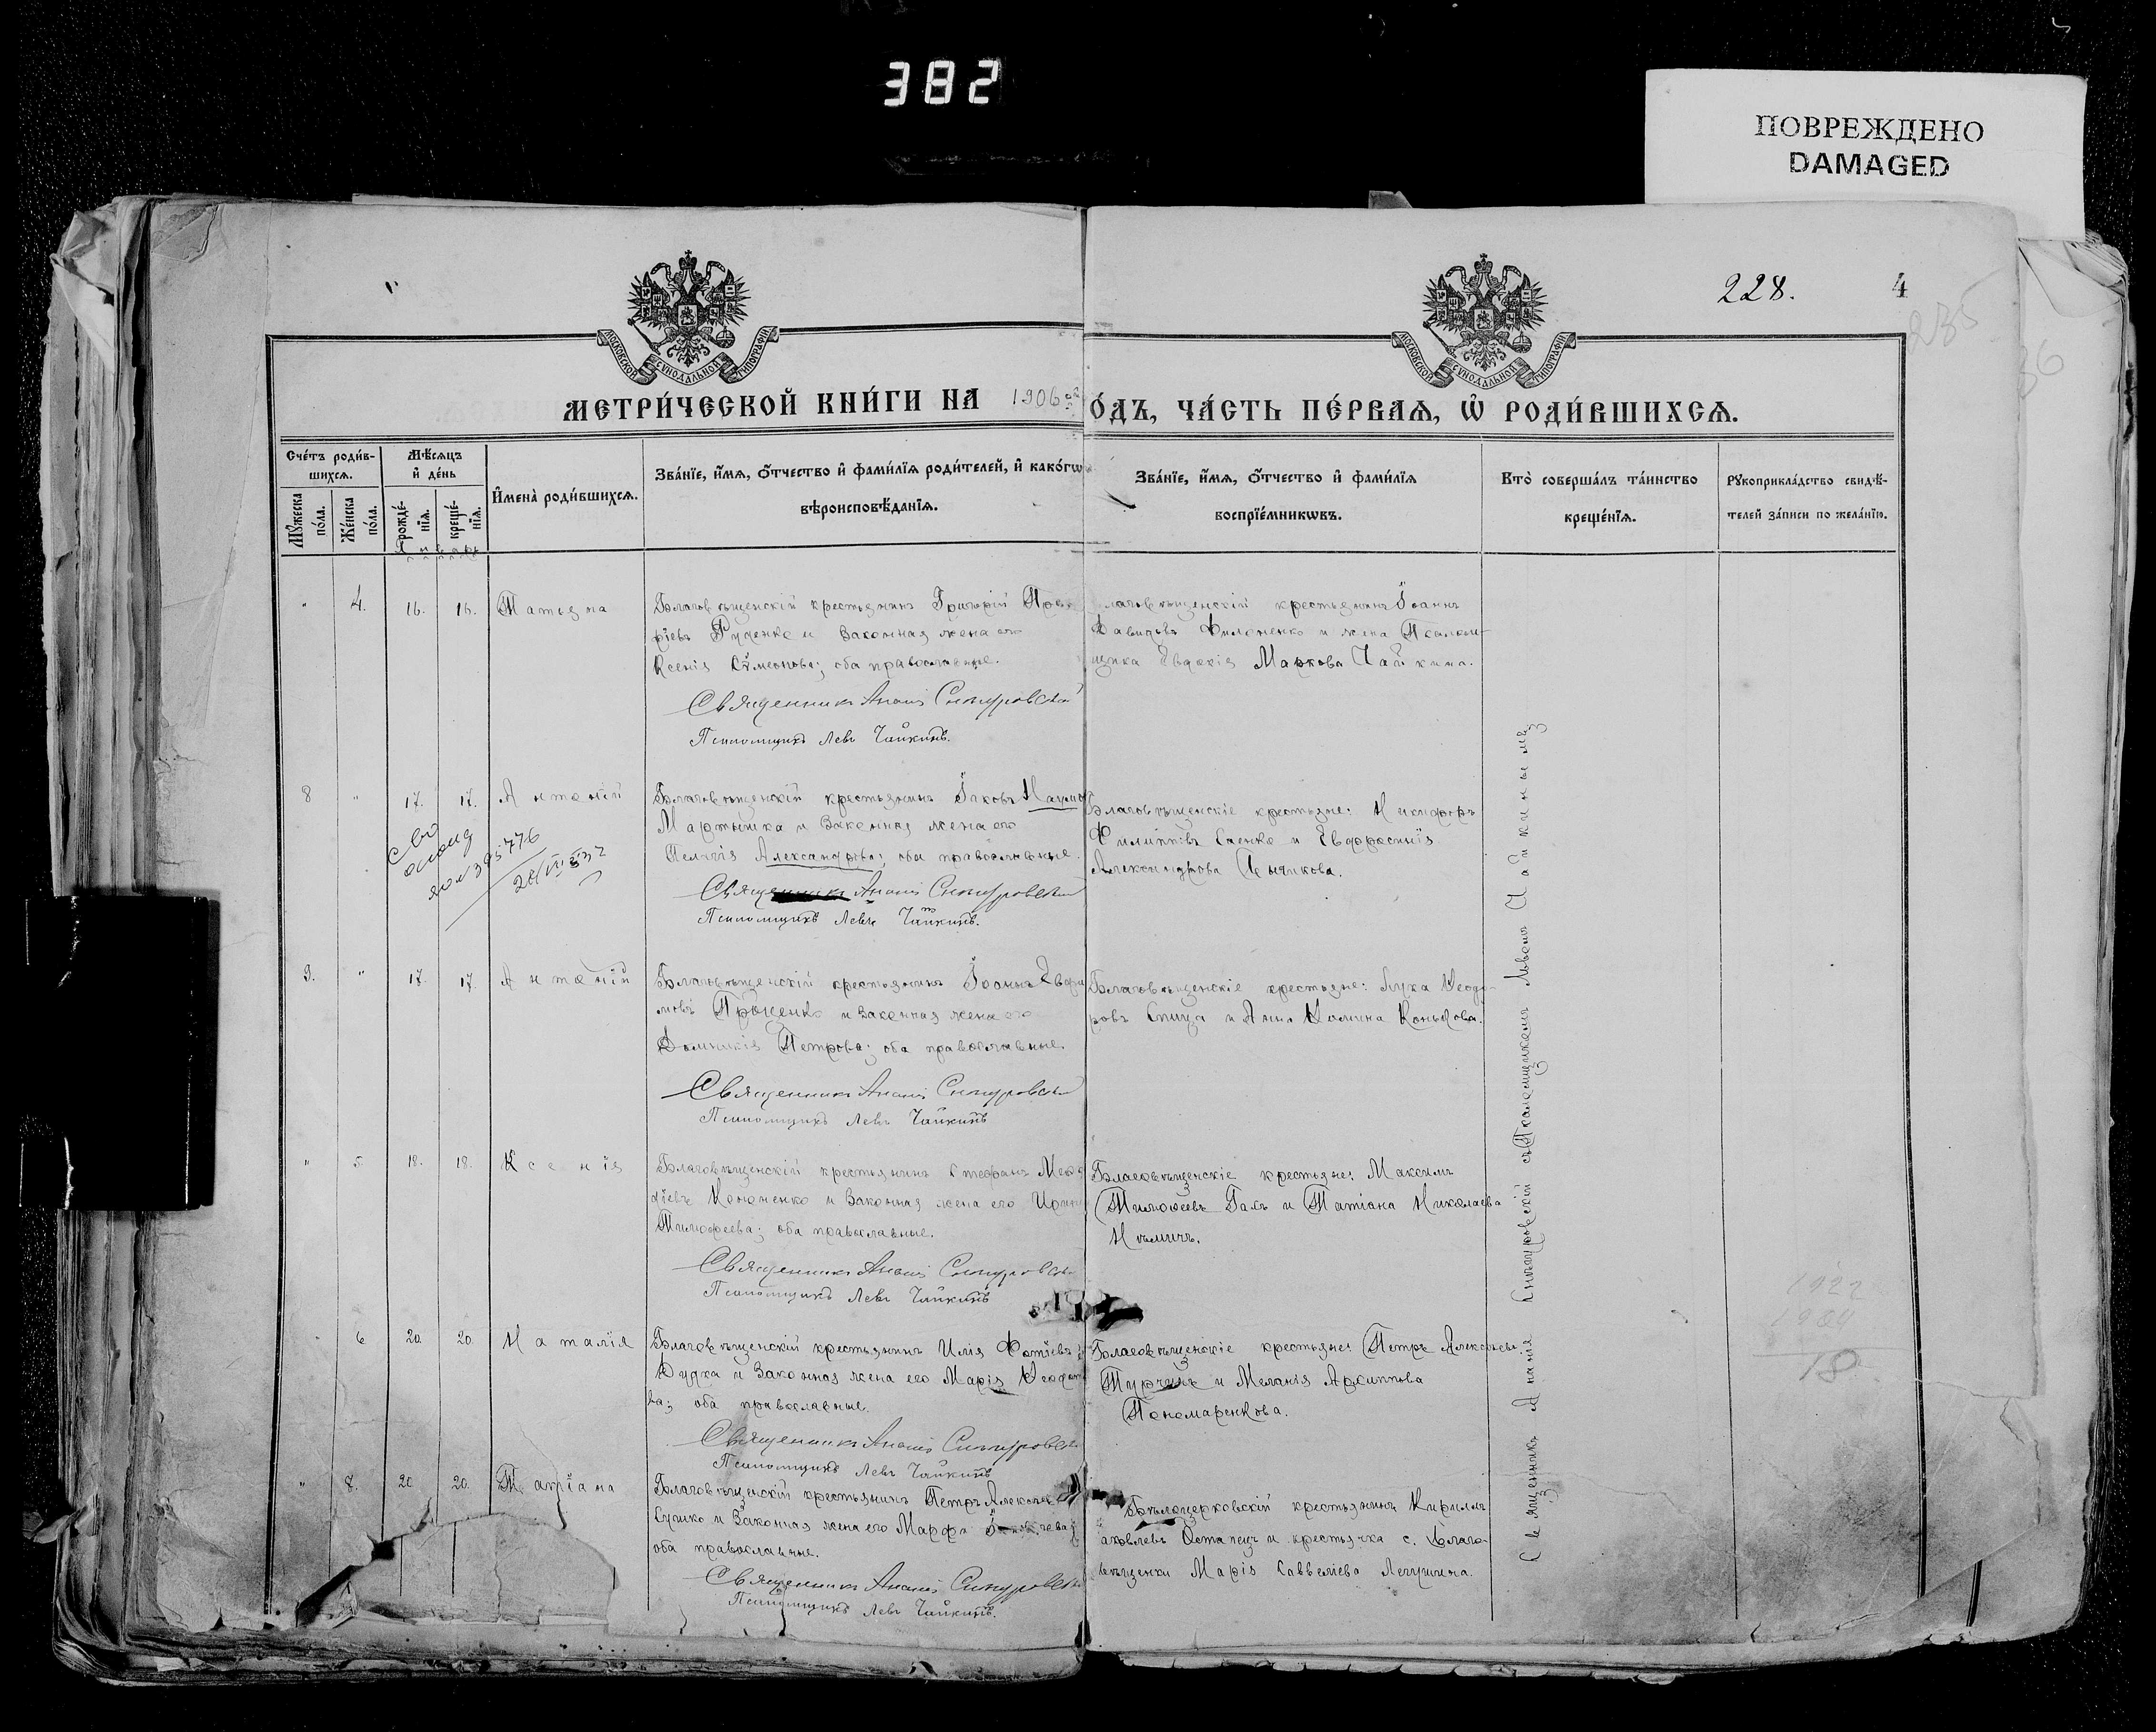 382
ПОВРЕЖДЕНО
DAMAGED
228.
4
МОСКОВСКОЙ СѴНОДАЛЬНОЙ ТИПОГРАФІИ
МОСКОВСКОЙ СѴНОДАЛЬНОЙ ТИПОГРАФІИ
МЕТРИ́ЧЕСКОЙ КНИ́ГИ НА 1906 О́ДЪ, ЧА́СТЬ ПЕ́РВАЯ, Ѡ҆ РОДИ́ВШИХСЯ.
Сче́тъ роди́в-
шихся.
Мѣ́сяцъ
и҆ де́нь
Мꙋ́жеска по́ла.
Же́нска по́ла.
рожде́-
нїя.
креще́-
нїя.
И҆мена̀ роди́вшихся.
Зва́нїе, и҆́мя, ѻ҆́тчество и҆ фами́лїя роди́телей, и҆ како́гѡ
вѣроисповѣ́данїя.
Зва́нїе, и҆́мя, ѻ҆́тчество и҆ фами́лїя
воспрїе́мникѡвъ.
Кто̀ соверша́лъ та́инство
креще́нїя.
Рꙋкоприкла́дство свидѣ́-
телей за́писи по жела́нїю.
" 4. 16. 16. Татьяна
Благовѣщенскій крестьянинъ Григорій
Руденко и законная жена его
Ксенія Сѵмеонова; оба православные.
Священникъ Ананій Снѣгуровскій
Псаломщикъ Левъ Чайкинъ.
лаговѣщенскій крестьянинъ Іоаннъ
Давидовъ Филоненко и жена Псалом-
щика Евдокія Маркова Чайкина.
8 " 17. 17. Антоній
Благовѣщенскій крестьянинъ Іаковъ Наумов
Мартышка и законная жена его
Пелагія Александрова; оба православные.
Священникъ Ананій Снѣгуровскій
Псаломщикъ Левъ Чайкинъ.
Благовѣщенскіе крестьяне: Никифоръ
Филипповъ Саенко и Евфросинія
Александрова
9. " 17. 17. Антоній
Благовѣщенскій крестьянинъ Іоаннъ Евфи
мовъ Проценко и законная жена его
Домникія Петрова; оба православные.
Священникъ Ананій Снѣгуровскій
Псаломщикъ Левъ Чайкинъ
Благовѣщенскіе крестьяне: Лука Ѳеодо-
ровъ Спица и Анна Конькова.
" 5. 18. 18. Ксенія
Благовѣщенскій крестьянинъ Стефанъ Меѳо
діевъ Кононенко и законная жена его Ирина
Тимофеева; оба православные.
Священникъ Ананій Снѣгуровскій
Псаломщикъ Левъ Чайкинъ
Благовѣщенскіе крестьяне: Максимъ
Тимоѳеевъ Галъ и Татіана Николаева
Нѣмичъ.
" 6 20. 20. Наталія
Благовѣщенскій крестьянинъ Илія Фотіевъ
Дудка и законная жена его Марія Ѳеодо
ва; оба православные.
Священникъ Ананій Снѣгуровскій
Псаломщикъ Левъ Чайкинъ
Благовѣщенскіе крестьяне: Петръ Алексѣевъ
Турчинъ и Меланія Архиппова
Пономаренкова.
" 8. 20 20. Татіана
Благовѣщенскій крестьянинъ Петръ Алексѣ
Сушко и законная жена его Марфа
оба православные.
Священникъ Ананій Снѣгуровскій
Псаломщикъ Левъ Чайкинъ.
Бѣлоцерковскій крестьянинъ Кириллъ
аковлевъ Остапецъ и крестьянка с. Благо-
вѣщенки Марія Савелиева Легушина.
Священникъ Ананія Снѣгуровскій съ Псаломщикомъ Львомъ Чайкинымъ
1922
1904
18